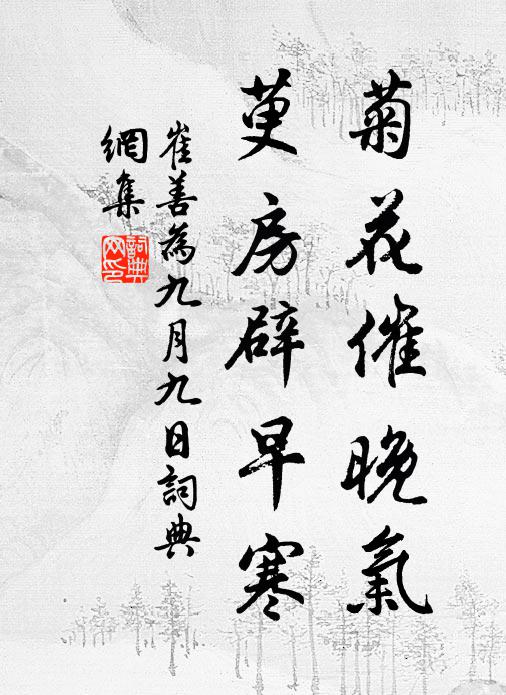 菊花催晚氣
萸房辟早寒
崔善為九月九日詞典
網集
詞典
网印